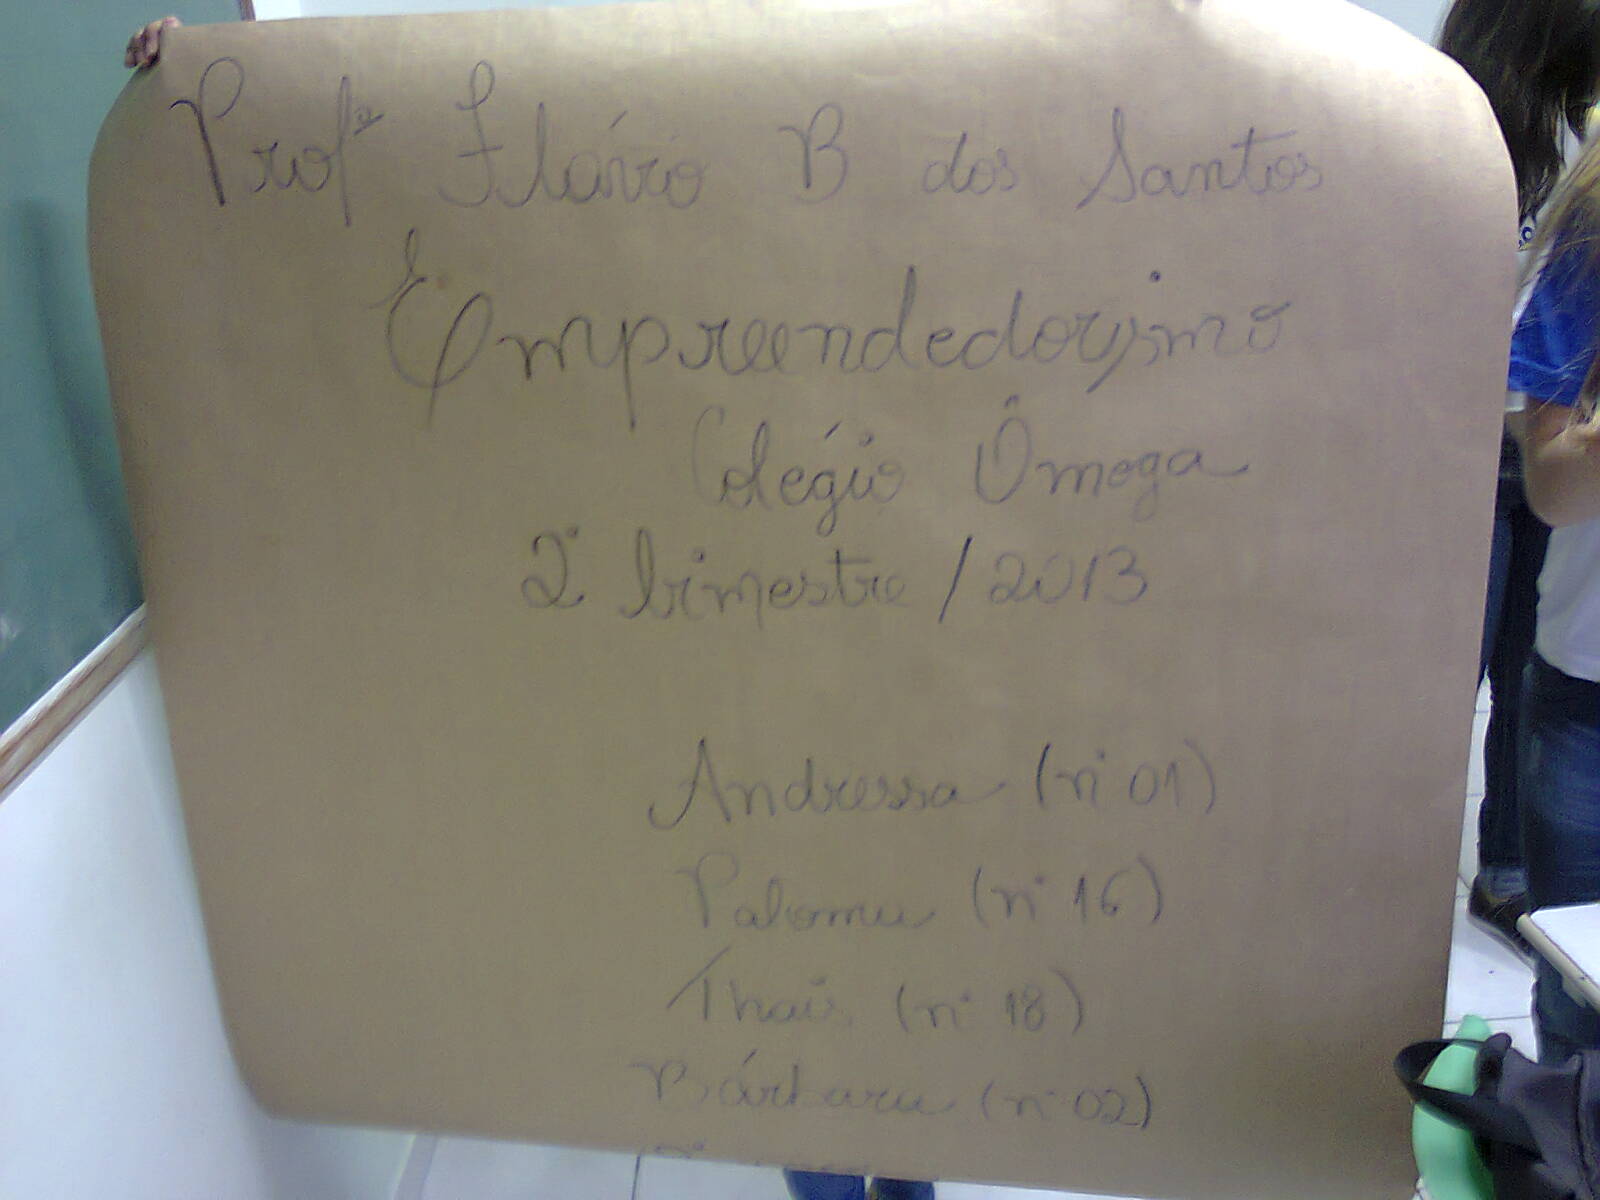 Profº Flávio B dos Santos
Empreendedorismo
Colégio Ômega
2º bimestre / 2013
Andressa (nº 01)
Paloma (nº 16)
Thaís (nº 18)
Bárbara (nº 02)